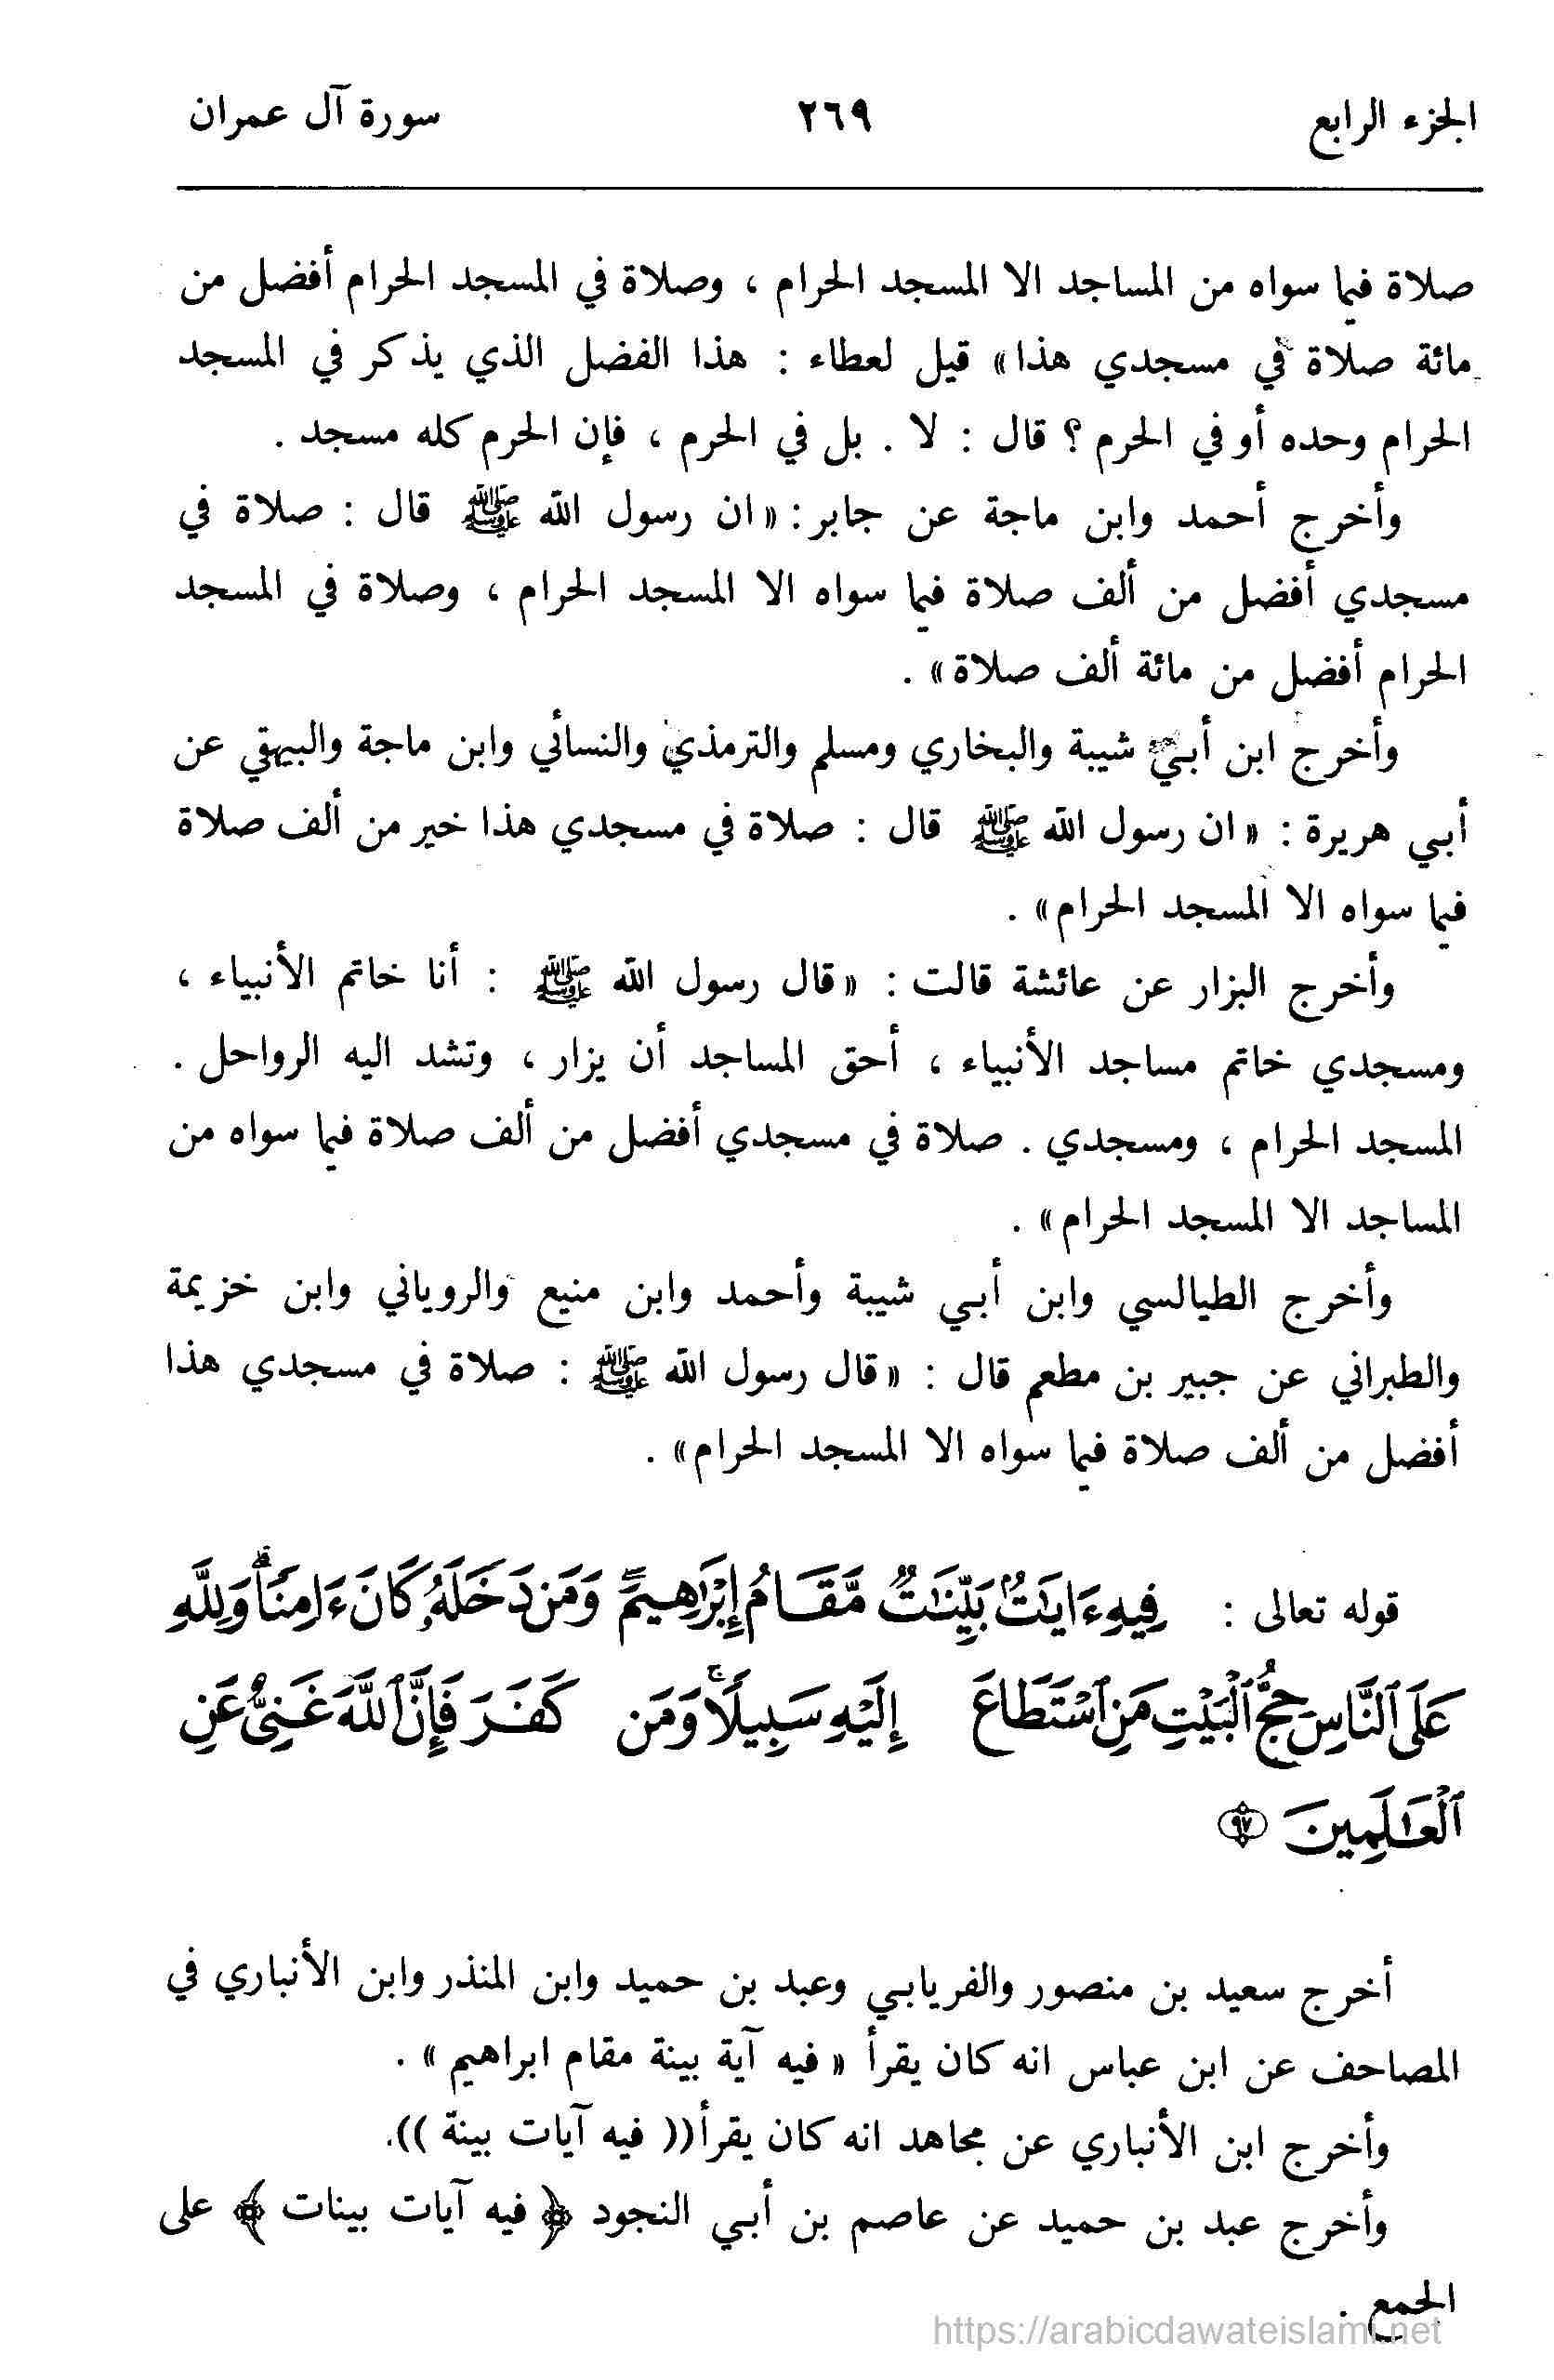 الجزء الرابع ٢٦٩ سورة آل عمران
صلاة فيما سواه من المساجد الا المسجد الحرام ، وصلاة في المسجد الحرام أفضل من
مائة صلاة في مسجدي هذا» قيل لعطاء : هذا الفضل الذي يذكر في المسجد
الحرام وحده أو في الحرم ؟ قال : لا . بل في الحرم ، فإن الحرم كله مسجد .
وأخرج أحمد وابن ماجة عن جابر : «ان رسول الله ﷺ قال : صلاة في
مسجدي أفضل من ألف صلاة فيما سواه الا المسجد الحرام ، وصلاة في المسجد
الحرام أفضل من مائة ألف صلاة» .
وأخرج ابن أبي شيبة والبخاري ومسلم والترمذي والنسائي وابن ماجة والبيهقي عن
أبي هريرة : «ان رسول الله ﷺ قال : صلاة في مسجدي هذا خير من ألف صلاة
فيما سواه الا المسجد الحرام» .
وأخرج البزار عن عائشة قالت : «قال رسول الله ﷺ : أنا خاتم الأنبياء ،
ومسجدي خاتم مساجد الأنبياء ، أحق المساجد أن يزار ، وتشد اليه الرواحل .
المسجد الحرام ، ومسجدي . صلاة في مسجدي أفضل من ألف صلاة فيما سواه من
المساجد الا المسجد الحرام» .
وأخرج الطيالسي وابن أبي شيبة وأحمد وابن منيع والروياني وابن خزيمة
والطبراني عن جبير بن مطعم قال : «قال رسول الله ﷺ : صلاة في مسجدي هذا
أفضل من ألف صلاة فيما سواه الا المسجد الحرام» .
قوله تعالى : فِيهِ ءَايَٰتٌۢ بَيِّنَٰتٌ مَّقَامُ إِبْرَٰهِيمَۖ وَمَن دَخَلَهُۥ كَانَ ءَامِنًاۗ وَلِلَّهِ
عَلَى ٱلنَّاسِ حِجُّ ٱلْبَيْتِ مَنِ ٱسْتَطَاعَ إِلَيْهِ سَبِيلًاۚ وَمَن كَفَرَ فَإِنَّ ٱللَّهَ غَنِىٌّ عَنِ
ٱلْعَٰلَمِينَ ٩٧
أخرج سعيد بن منصور والفريابي وعبد بن حميد وابن المنذر وابن الأنباري في
المصاحف عن ابن عباس انه كان يقرأ « فيه آية بينة مقام ابراهيم » .
وأخرج ابن الأنباري عن مجاهد انه كان يقرأ(( فيه آيات بينة )).
وأخرج عبد بن حميد عن عاصم بن أبي النجود ﴿ فيه آيات بينات ﴾ على
الجمع .
https://arabicdawateislami.net